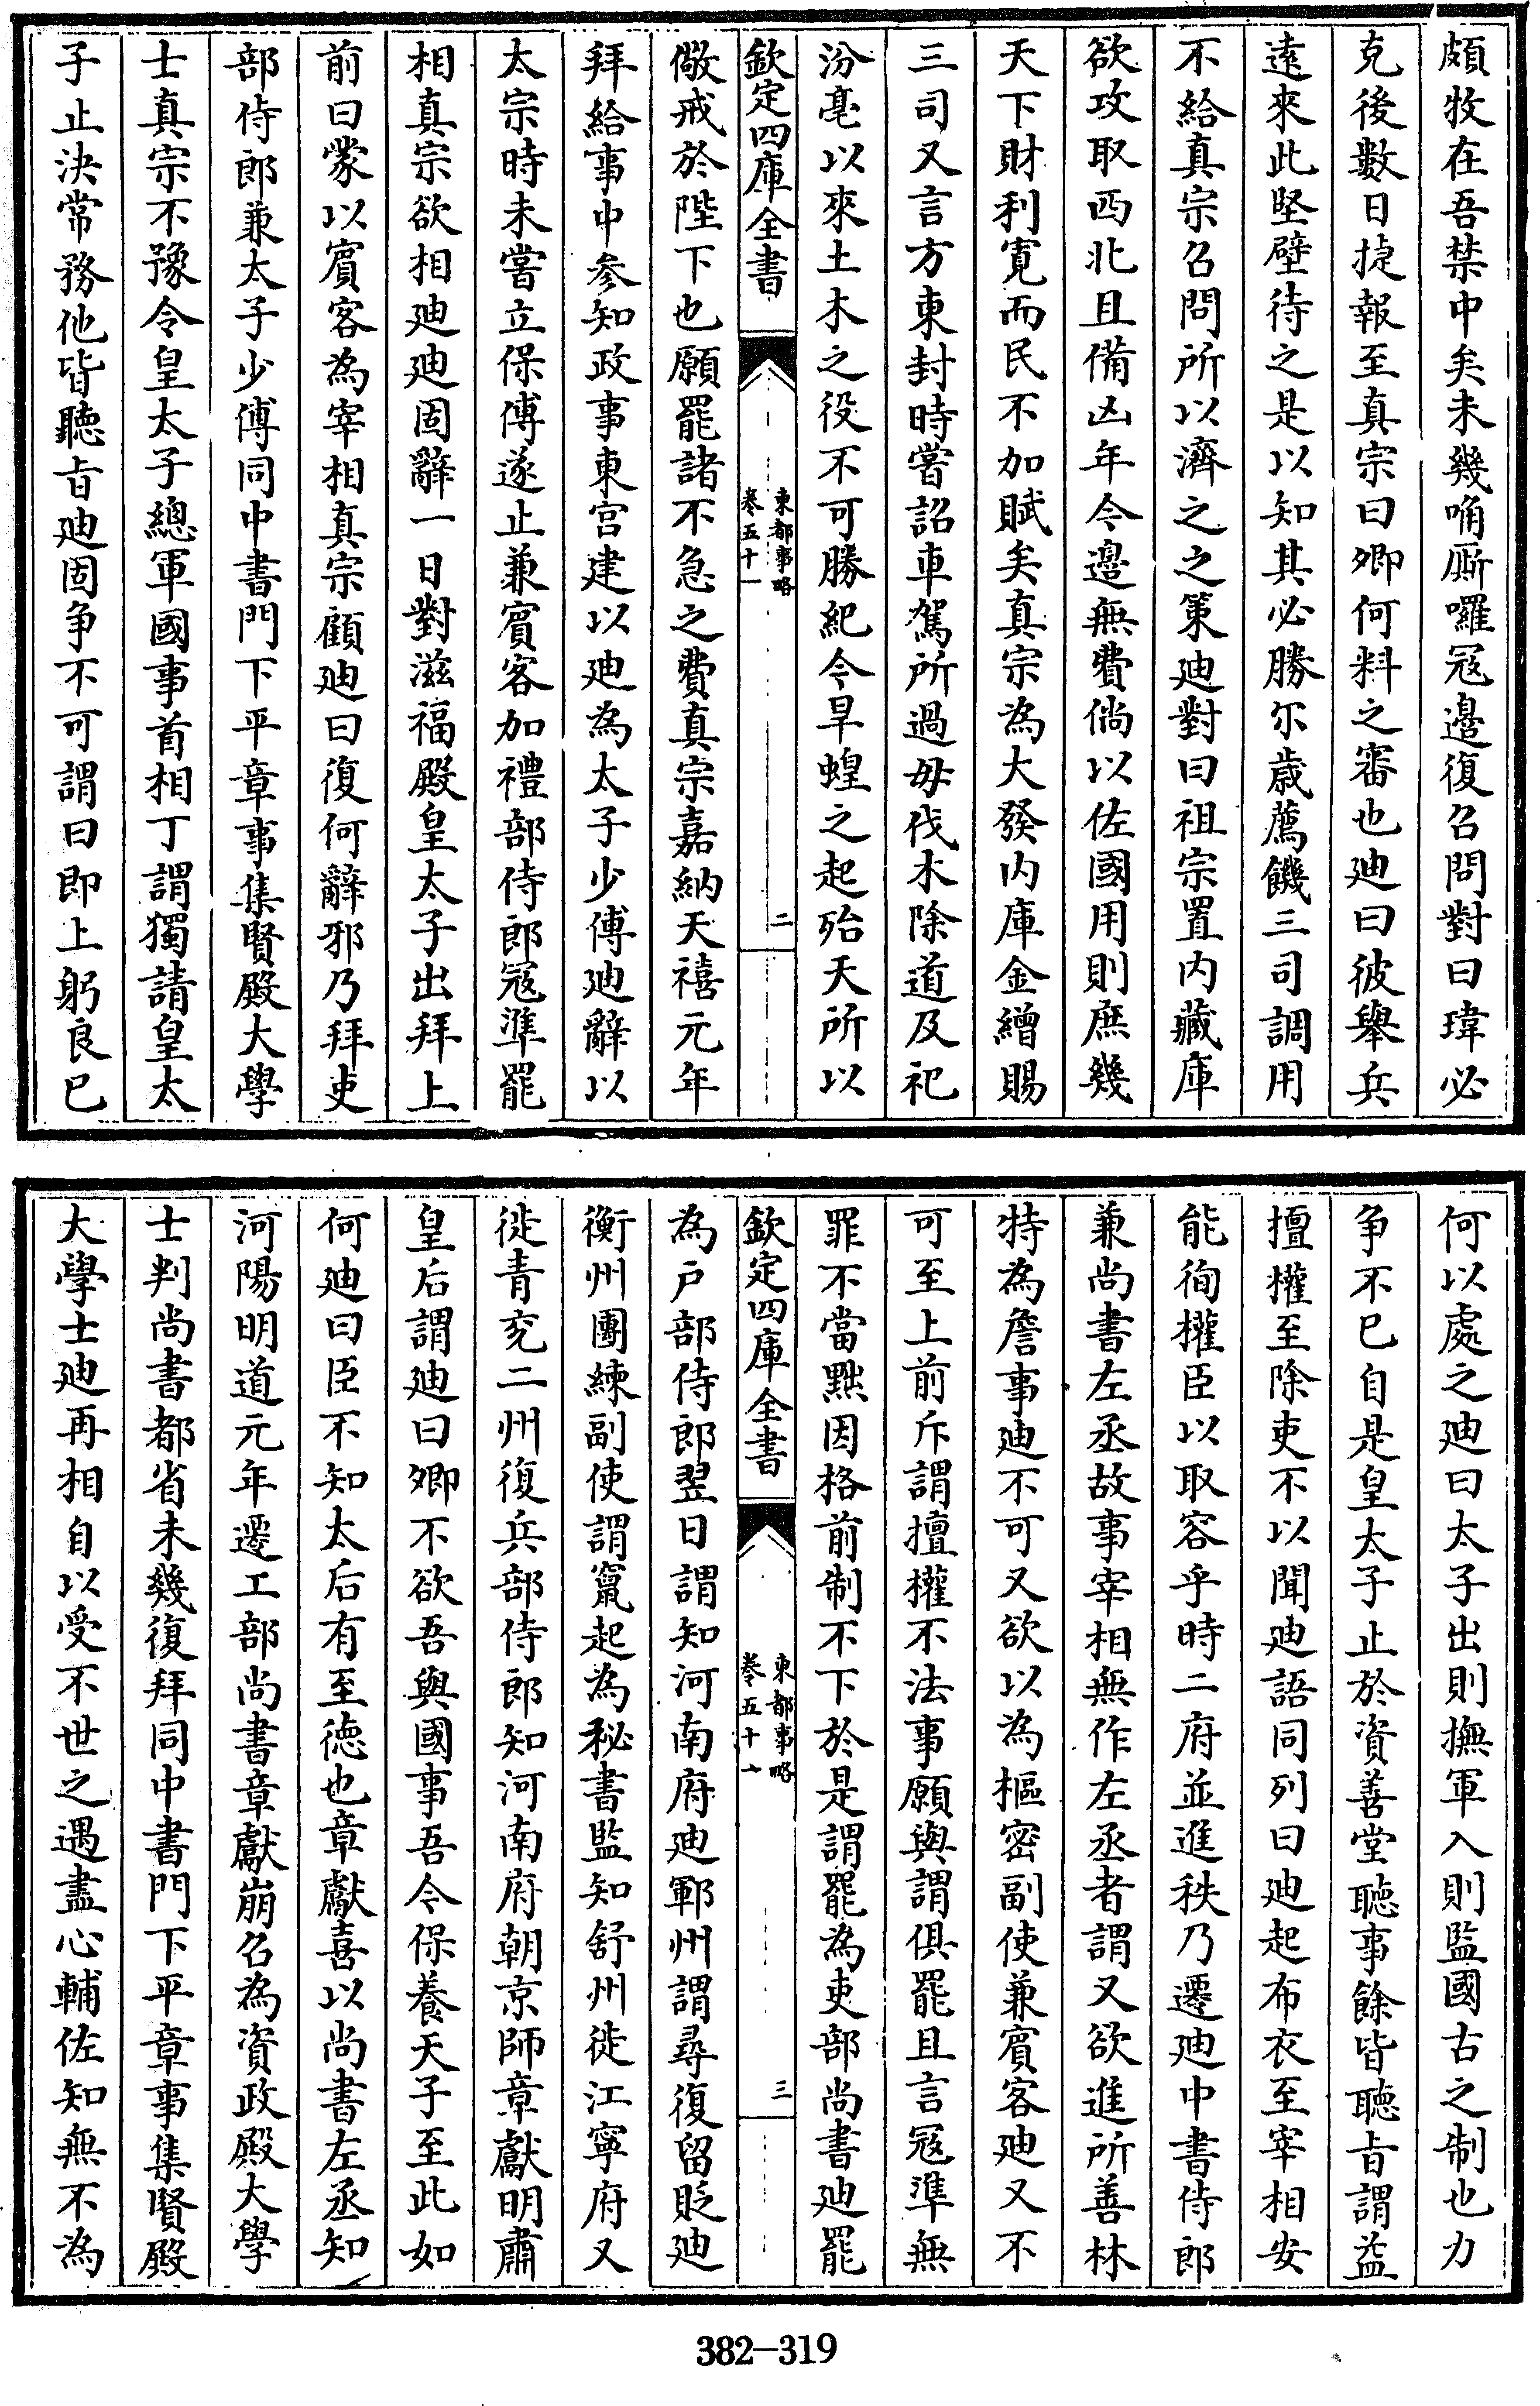 頗牧在吾禁中矣未幾唃厮囉冦邉復召問對曰瑋必
克後數日捷報至真宗曰卿何料之審也廸曰彼舉兵
逺來此堅壁待之是以知其必勝尔嵗薦饑三司調用
不給真宗召問所以濟之之策廸對曰祖宗置内藏庫
欲攻取西北且備凶年今邉無費倘以佐國用則庶幾
天下財利寛而民不加賦矣真宗為大發内庫金繒賜
三司又言方東封時嘗詔車駕所過毋伐木除道及祀
汾亳以來土木之役不可勝紀今旱蝗之起殆天所以
欽定四庫全書
東都事略
卷五十一
二
儆戒於陛下也願罷諸不急之費真宗嘉納天禧元年
拜給事中參知政事東宫建以廸為太子少傅廸辭以
太宗時未嘗立保傅遂止兼賓客加禮部侍郎冦準罷
相真宗欲相廸廸固辭一日對滋福殿皇太子出拜上
前曰蒙以賓客為宰相真宗顧廸曰復何辭邪乃拜吏
部侍郎兼太子少傅同中書門下平章事集賢殿大學
士真宗不豫令皇太子總軍國事首相丁謂獨請皇太
子止決常務他皆聽㫖廸固争不可謂曰即上躬良已
何以處之廸曰太子出則撫軍入則監國古之制也力
争不已自是皇太子止於資善堂聽事餘皆聽㫖謂益
擅權至除吏不以聞廸語同列曰廸起布衣至宰相安
能徇權臣以取容乎時二府並進秩乃遷廸中書侍郎
兼尚書左丞故事宰相無作左丞者謂又欲進所善林
特為詹事廸不可又欲以為樞密副使兼賓客廸又不
可至上前斥謂擅權不法事願與謂俱罷且言冦準無
罪不當黜因格前制不下於是謂罷為吏部尚書廸罷
欽定四庫全書
東都事略
卷五十一
三
為户部侍郎翌日謂知河南府廸鄆州謂尋復留貶廸
衡州團練副使謂竄起為秘書監知舒州徙江寧府又
徙青兖二州復兵部侍郎知河南府朝京師章獻明肅
皇后謂廸曰卿不欲吾與國事吾今保養天子至此如
何廸曰臣不知太后有至徳也章獻喜以尚書左丞知
河陽明道元年遷工部尚書章獻崩召為資政殿大學
士判尚書都省未幾復拜同中書門下平章事集賢殿
大學士廸再相自以受不世之遇盡心輔佐知無不為
382-319